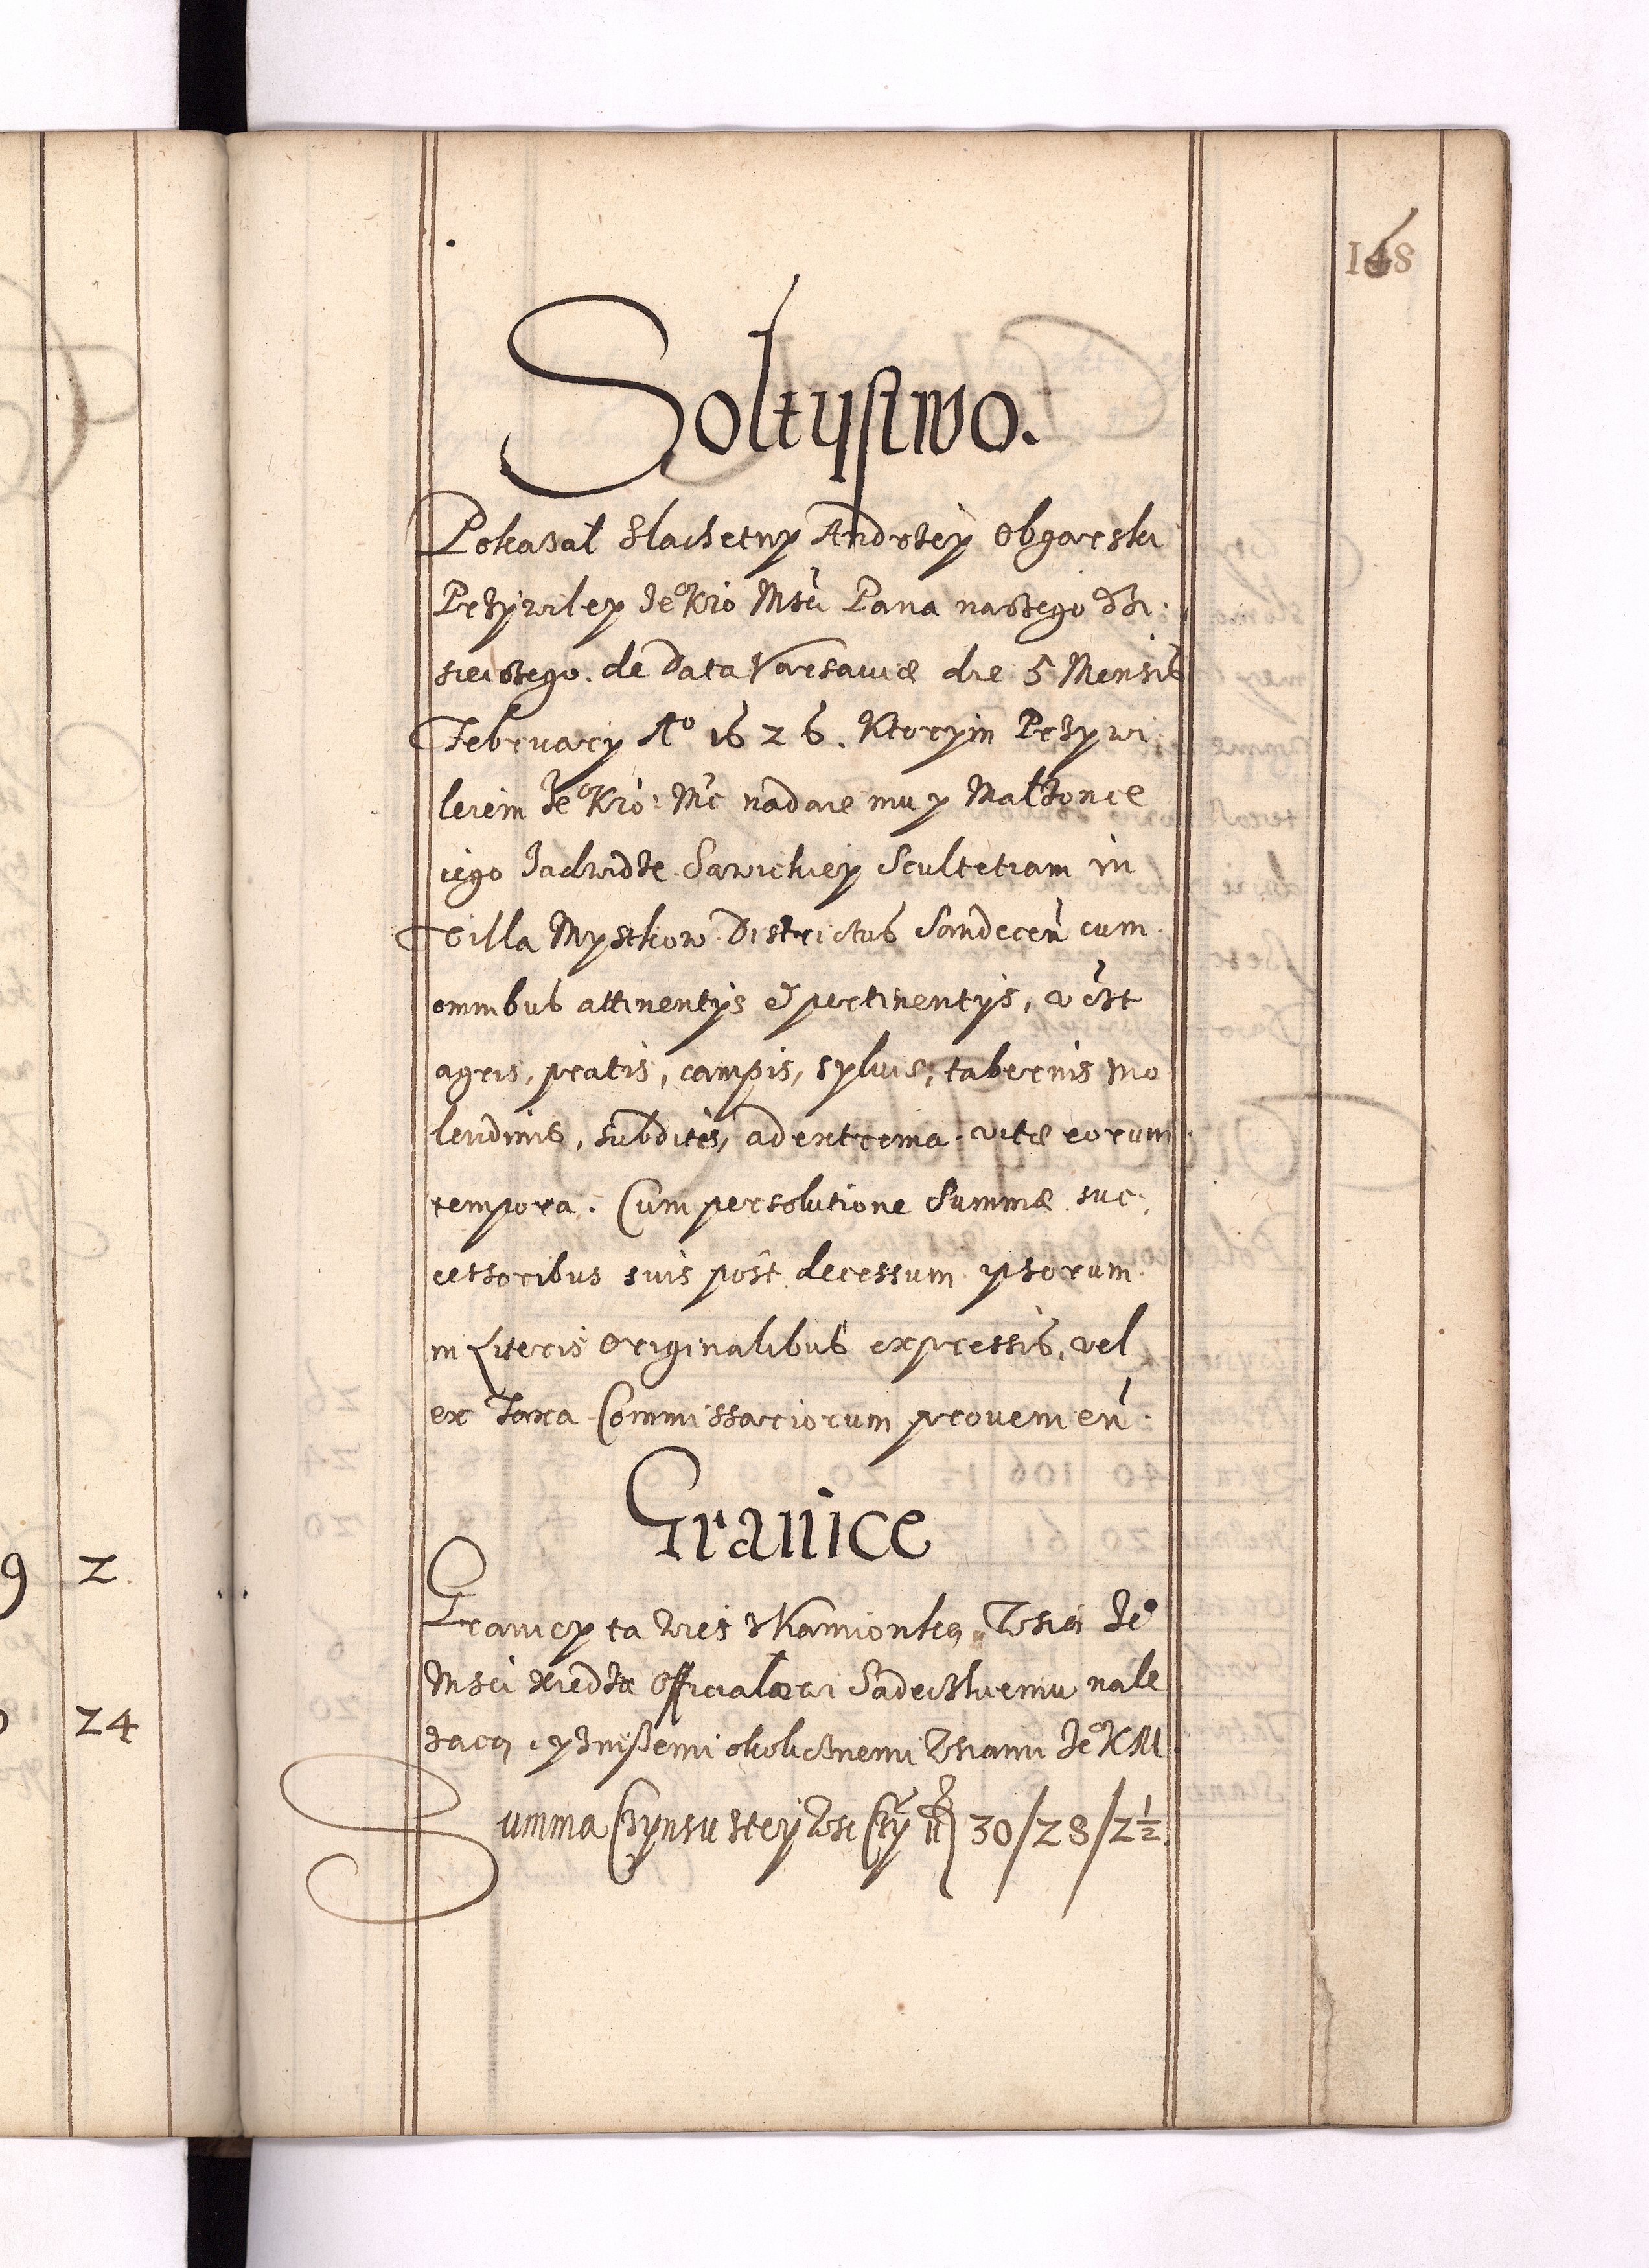 168
Sołtystwo.
Pokazał Slachetny Andrzey Obgarski
Przywiley Je° Kró Mści Pana naszego dzi:
sieiszego. de Data Varsaviæ die 5 Mensis
February A° 1626. Ktorym Przywi
leiem Je° Kró: Mć nadaie mu y Małżonce
iego Jadwidze Sawickiey Scultetiam in
Villa Mystkow Districtus Sandecen cum
omnibus attinentijs et pertinentijs, vczt
agris, pratis, campis, sylvis, tabernis mo
lendinis, subditis, ad extrema vitæ eorum
tempora. Cum persolutione Summæ suc:
cessoribus suis post decessum ipsorum
in Literis Originalibus expressis, vel
ex Taxa Commissariorum provenien.
Granice
Graniczy ta wieś z Kamionką Wsią Je°
Mści xiedza Officialowi Sadeczkiemu nale
żacą, y z inszemi okolicznemi Wsiami Je° K M
Summa Czynszu z tey Wsi Czy fl 30/28/2½.
9 2
24